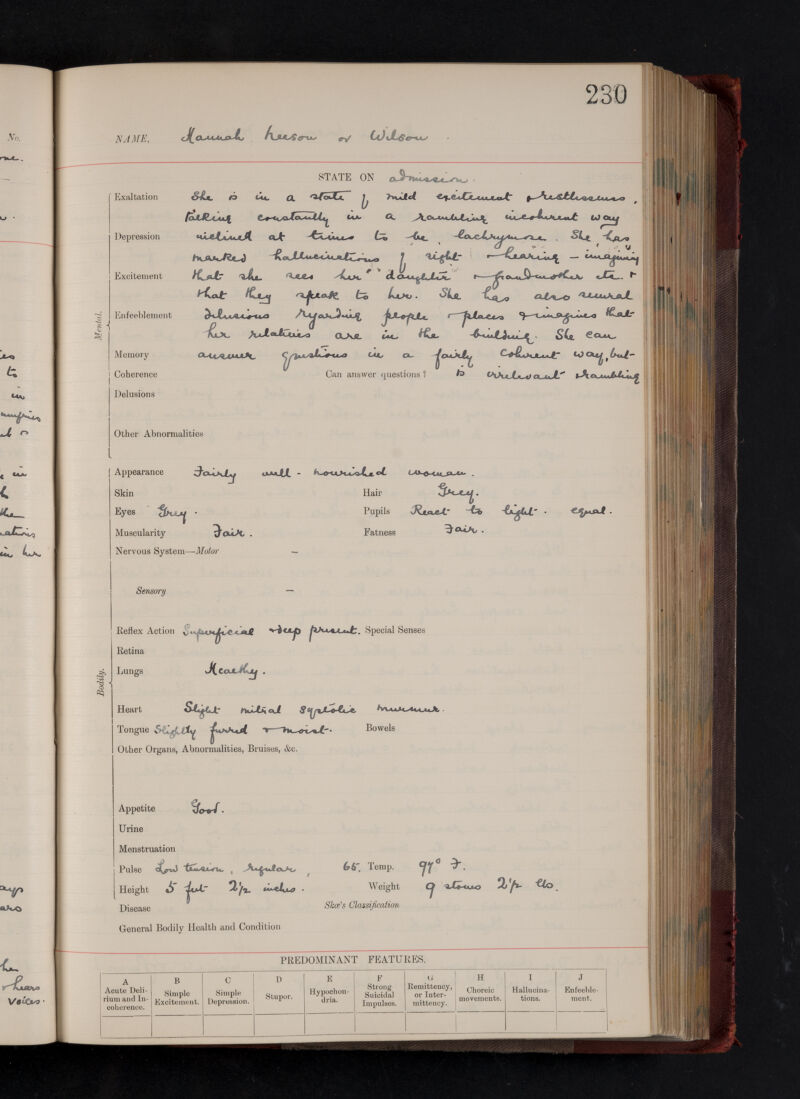 230
No.
NAME, Hannah Keeson or Wilson.
STATE ON admission.
Mental.
Exaltation She is in a state of mild excitement & restlessness,
talking constantly in a rambling incoherent way
Depression inclined at times to be lachrymose. She has
marked hallucinations of sight & hearing – imagining
Excitement that she sees her "daughter & grandmother etc. &
that they speak to her. She has also several
Enfeeblement delusions regarding people & places & imagines that
her relatives are in the building. She can
Memory answer questions in a fairly coherent way, but
Coherence Can answer questions? is irrelevant & rambling
Delusions
Other Abnormalities
Bodily.
Appearance Fairly well-nourished woman.
Skin Hair Grey.
Eyes Grey. Pupils React to light. equal.
Muscularity Fair. Fatness Fair.
Nervous System—Motor –
Sensory –
Reflex Action Superficial & deep present. Special Senses
Retina
Lungs Healthy.
Heart Slight mitral systolic murmur.
Tongue Slightly furred & moist. Bowels
Other Organs, Abnormalities, Bruises, &c.
Appetite Good.
Urine
Menstruation
Pulse Low tension, regular, 65. Temp. 97° F.
Height 5 feet 2½ inches. Weight 9 stones 2½ lbs.
Disease Skæ's Classification
General Bodily Health and Condition
PREDOMINANT FEATURES.
A Acute Delirium and Incoherence.
B Simple Excitement.
C Simple Depression.
D Stupor.
E Hypochondria.
F Strong Suicidal Impulses.
G Remittency, or Intermittency.
H Choreic movements.
I Hallucinations.
J Enfeeblement.
to
in
in
the
in her
hears
voices.